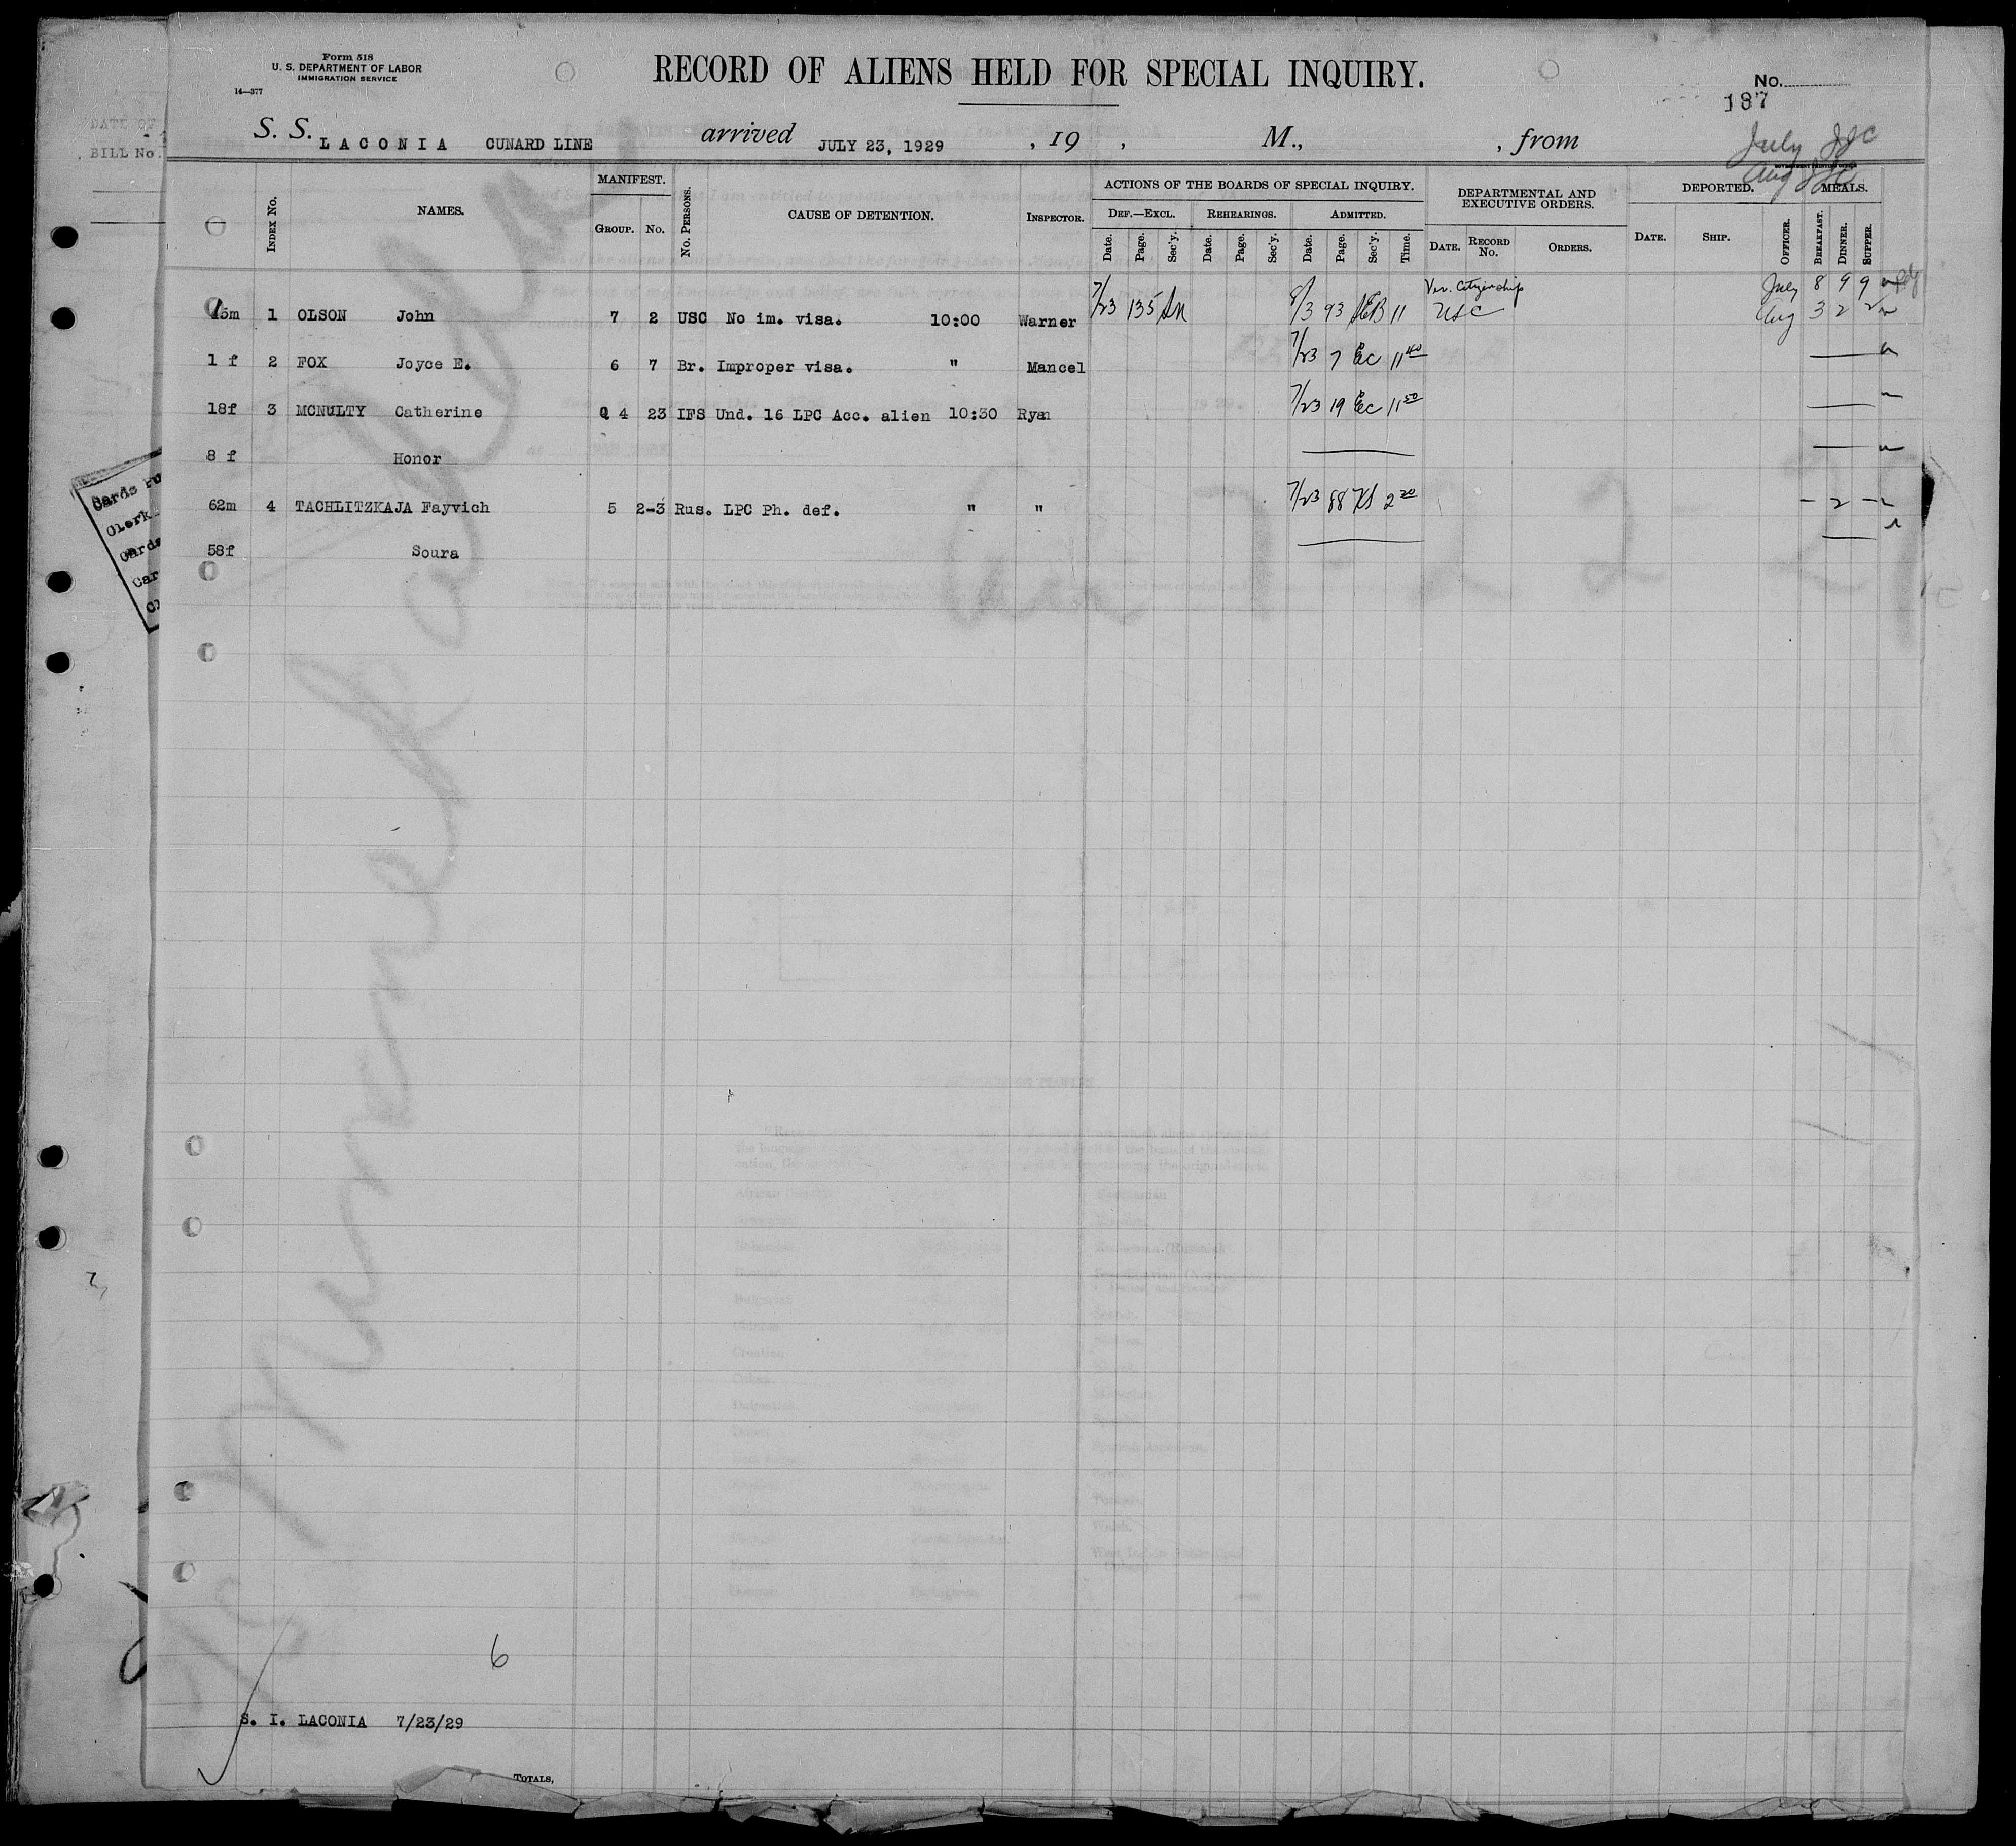 Form 518
U. S. DEPARTMENT OF LABOR
IMMIGRATION SERVICE
14—377
RECORD OF ALIENS HELD FOR SPECIAL INQUIRY.
No.
187
S. S. LACONIA CUNARD LINE arrived JULY 23, 1929 , 19 , M., , from
July JJC
Aug JJC
DATE OF
BILL No.
INDEX No. NAMES. MANIFEST. GROUP. No. No. PERSONS. CAUSE OF DETENTION. INSPECTOR. ACTIONS OF THE BOARDS OF SPECIAL INQUIRY. DEPARTMENTAL AND EXECUTIVE ORDERS. DEPORTED. MEALS.
DEF.—EXCL. REHEARINGS. ADMITTED.
Date. Page. Sec'y. Date. Page. Sec'y. Date. Page. Sec'y. Time. DATE. RECORD No. ORDERS. DATE. SHIP. OFFICER. BREAKFAST. DINNER. SUPPER.
Ver. Citizenship July 8 9 9
15m 1 OLSON John 7 2 USC No im. visa. 10:00 Warner 7/23 135 8/3 93 AEB 11 USC Aug 3 2 2
1 f 2 FOX Joyce E. 6 7 Br. Improper visa. " Mancel 7/23 7 EC 11 40
18f 3 MCNULTY Catherine Q 4 23 IFS Und. 16 LPC Acc. alien 10:30 Ryan 7/23 19 EC 11 50
8 f Honor
62m 4 TACHLITZKAJA Fayvich 5 2-3 Rus. LPC Ph. def. " " 7/23 88 KS 2 20 — 2 —
58f Soura
Cards
Clerk
Cards
6
S. I. LACONIA 7/23/29
TOTALS,